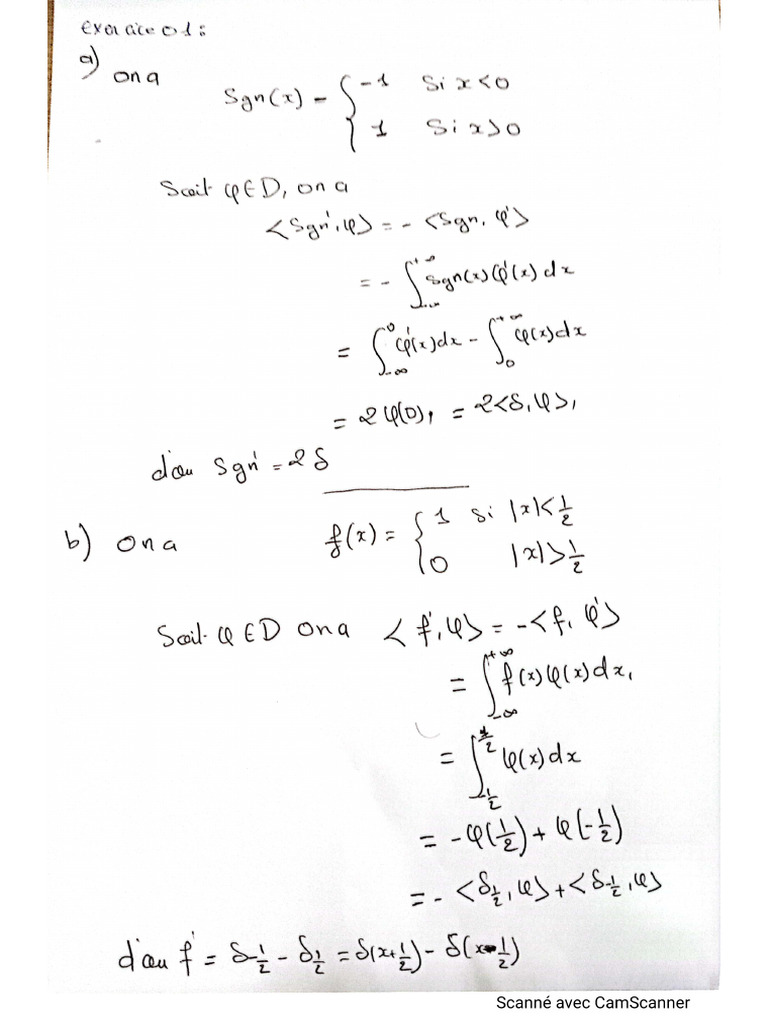 Exercice 01:
a) on a
Sgn(x) = { -1 si x<0
1 si x>0
Soit φ∈D, on a
<Sgn', φ> = - <Sgn, φ'>
= - ∫_{-∞}^{+∞} Sgn(x) φ'(x) dx
= ∫_{-∞}^{0} φ'(x)dx - ∫_{0}^{+∞} φ(x)dx
= 2φ(0), = 2<δ, φ>,
d'ou Sgn' = 2δ
b) on a f(x) = { 1 si |x|<1/2
0 |x|>1/2
Soit φ∈D on a <f', φ> = -<f, φ'>
= ∫_{-∞}^{+∞} f(x) φ(x) dx,
= ∫_{-1/2}^{1/2} φ(x) dx
= -φ(1/2) + φ(-1/2)
= - <δ_{1/2}, φ> + <δ_{-1/2}, φ>
d'ou f' = δ_{-1/2} - δ_{1/2} = δ(x+1/2) - δ(x-1/2)
Scanné avec CamScanner